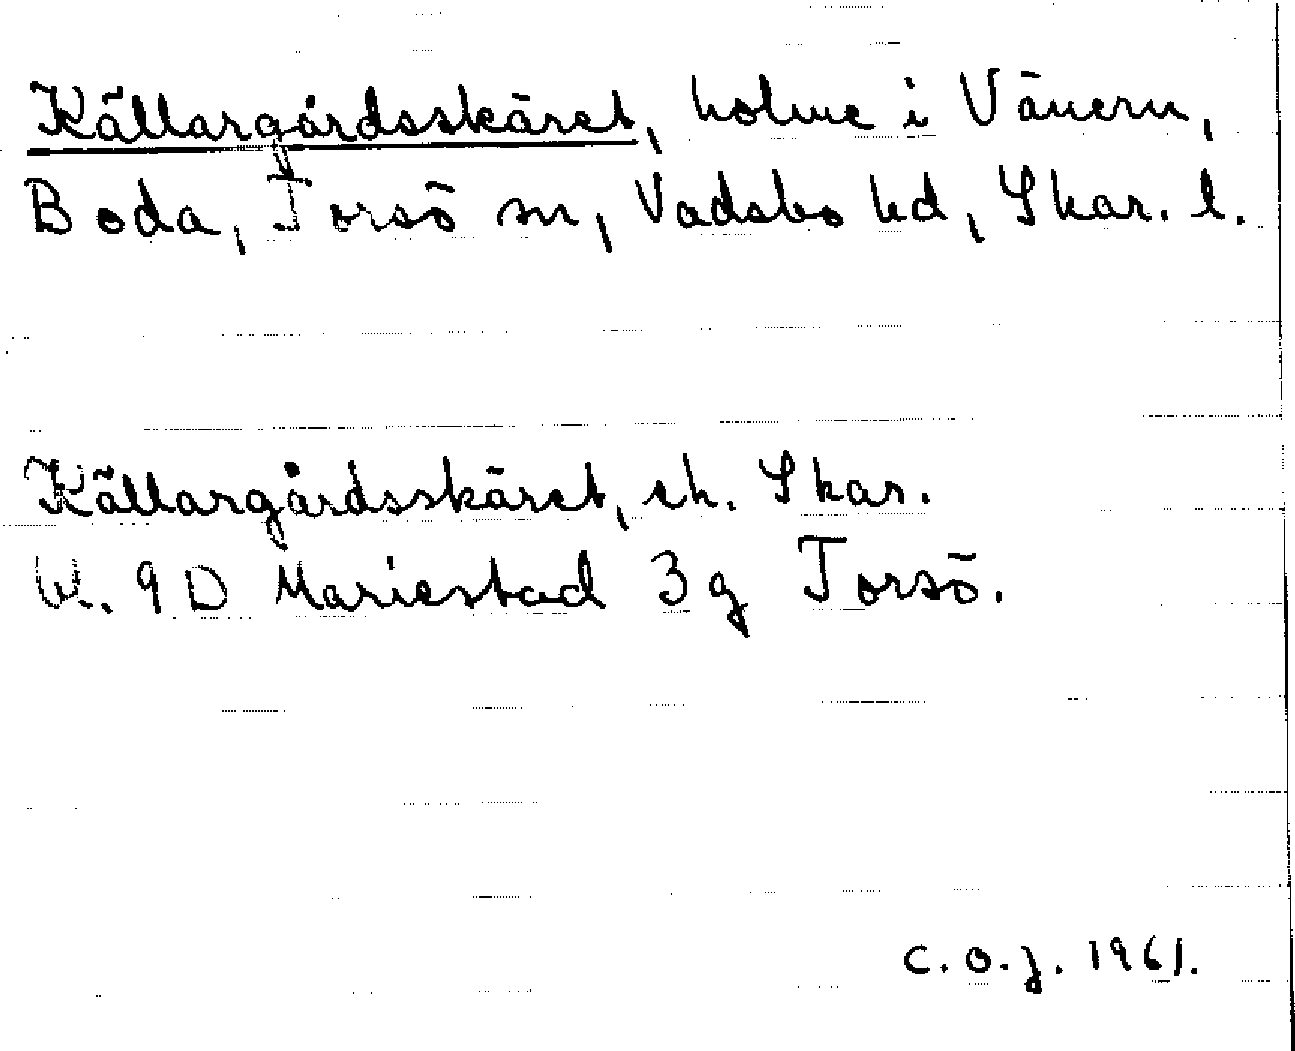 Källargårdsskäret, holme i Vänern,
Boda, Torsö sn, Vadsbo hd, Skar. l.
Källargårdsskäret, ek. Skar.
K. 9 D Mariestad 3 g Torsö.
C.O.J. 1961.